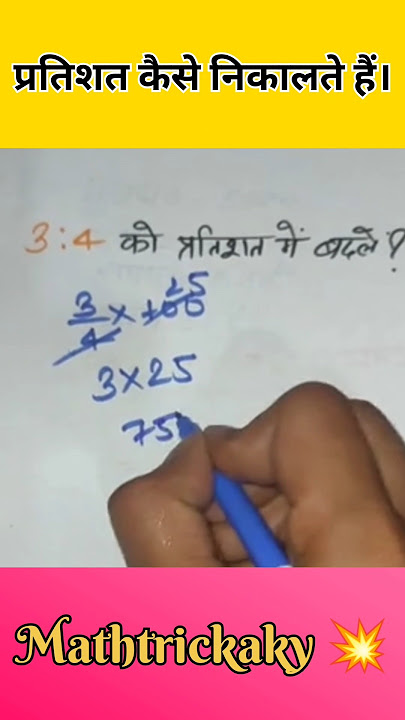 प्रतिशत कैसे निकालते हैं।
3:4 को प्रतिशत में बदलें?
25
3/4 × 100
3×25
75
Mathtrickaky 💥